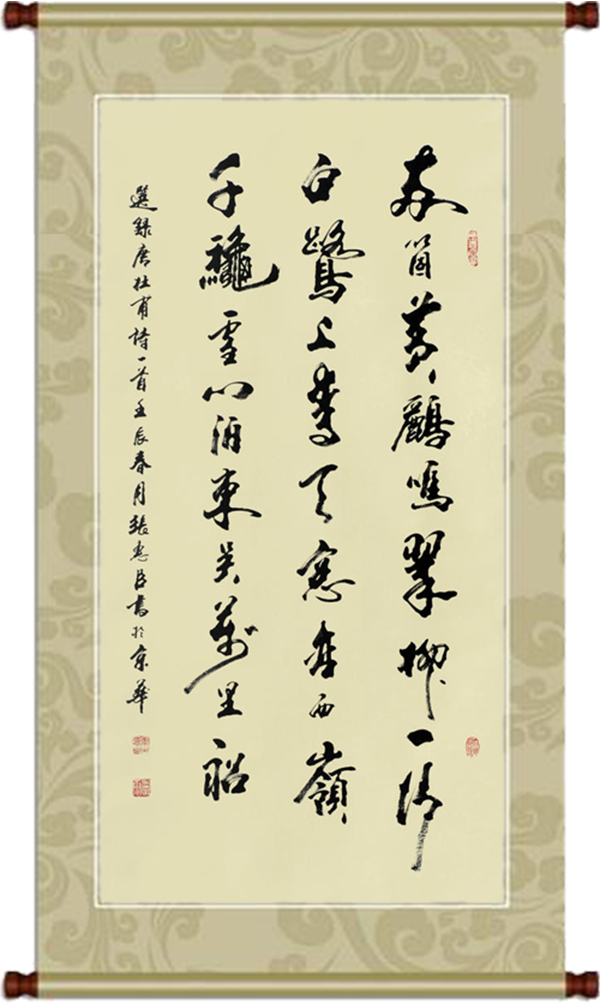 两箇黄鸝鳴翠柳一行
白鷺上青天窓含西嶺
千龝雪门泊東吴萬里船
選録唐杜甫詩一首壬辰春月張書於京華